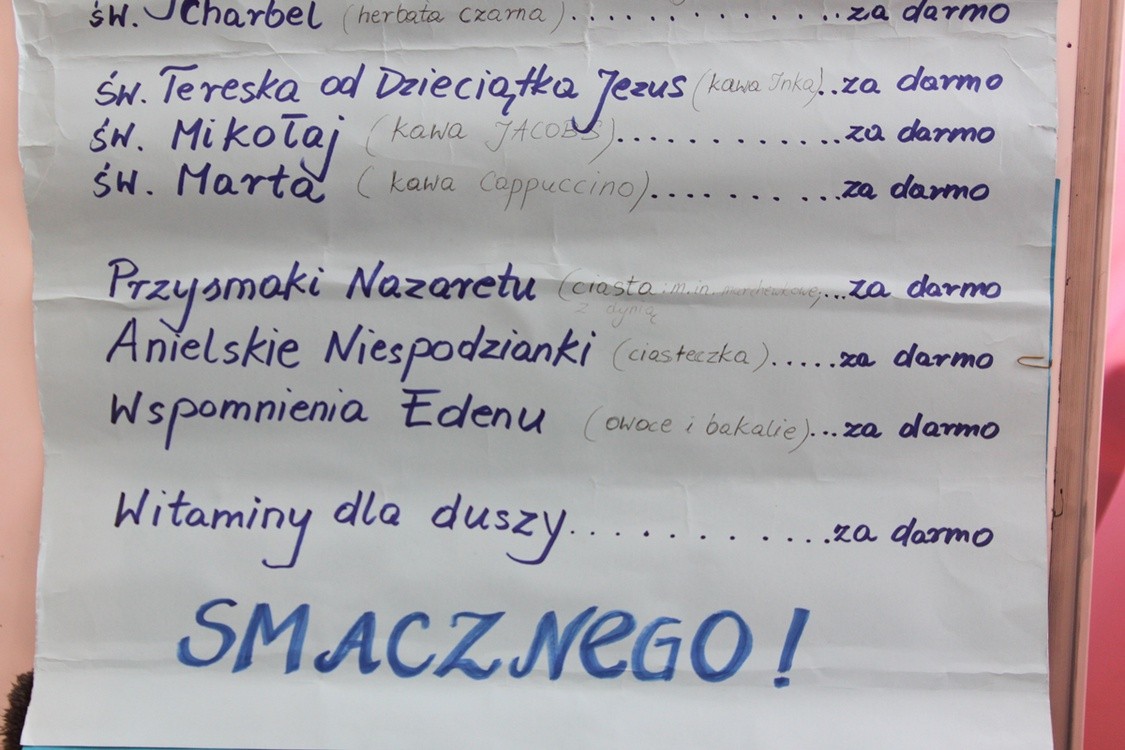 św. Charbel (herbata czarna)..................za darmo
św. Tereska od Dzieciątka Jezus (kawa Inka)..za darmo
św. Mikołaj (kawa JACOBS)..............za darmo
św. Marta (kawa Cappuccino)............za darmo
Przysmaki Nazaretu (ciasta: m.in. marchewkowe,...za darmo
z dynią
Anielskie Niespodzianki (ciasteczka).....za darmo
Wspomnienia Edenu (owoce i bakalie)...za darmo
Witaminy dla duszy..............za darmo
SMACZNeGO!